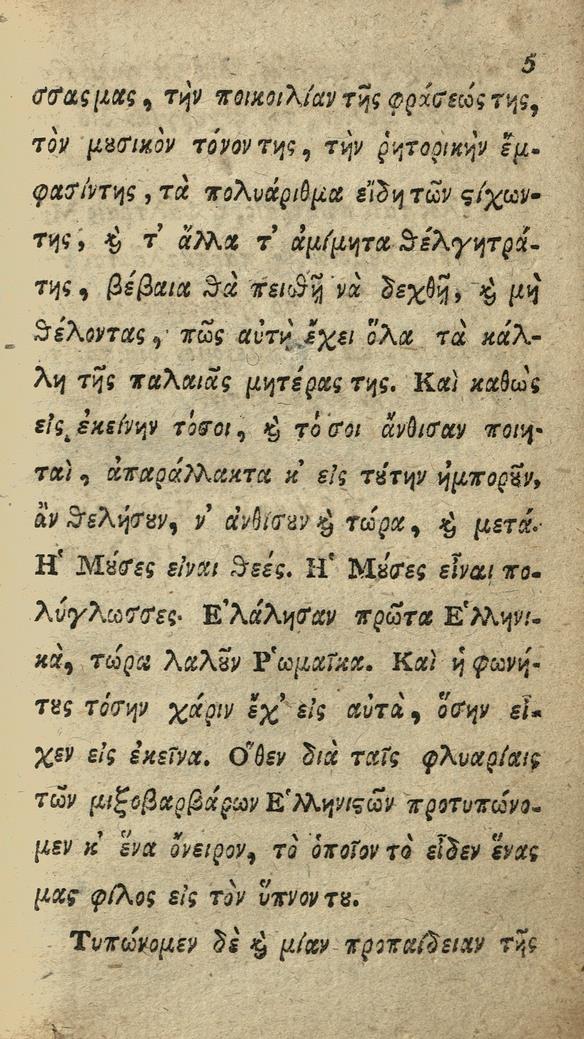 5
σσας μας, τὴν ποικοιλίαν τῆς φράσεώς της,
τὸν μȣσικὸν τόνον της, τὴν ῥητορικὴν ἔμ-
φασίντης, τὰ πολυάριθμα εἴδη τῶν ϛίχων-
της, ϗ̀ τ' ἄλλα τ' ἀμίμητα θέλγητρά-
της, βέβαια θὰ πειθῇ νὰ δεχθῇ, ϗ̀ μὴ
θέλοντας, πῶς αὐτὴ ἔχει ὅλα τὰ κάλ-
λη τῆς παλαιᾶς μητέρας της. Καὶ καθὼς
εἰς ἐκείνην τόσοι, ϗ̀ τόσοι ἄνθισαν ποιη-
ταὶ, ἀπαράλλακτα κ' εἰς τȣ́την ἡμπορȣ͂ν,
ἂν θελήσȣν, ν' ἀνθίσȣν ϗ̀ τώρα, ϗ̀ μετά.
Η῾ Μȣ́σες εἶναι θεές. Η῾ Μȣ́σες εἶναι πο-
λύγλωσσες. Ε᾿λάλησαν πρῶτα Ε῾λληνι-
κὰ, τώρα λαλȣ͂ν Ρ῾ωμαῖκα. Καὶ ἡ φωνή-
τȣς τόσην χάριν ἔχ' εἰς αὐτὰ, ὅσην εἶ-
χεν εἰς ἐκεῖνα. Ο῞θεν διὰ ταῖς φλυαρίαις
τῶν μιξοβαρβάρων Ε῾λληνιϛῶν προτυπώνο-
μεν κ' ἕνα ὄνειρον, τὸ ὁποῖον τὸ εἶδεν ἕνας
μας φίλος εἰς τὸν ὕπνον τȣ.
Τυπώνομεν δὲ ϗ̀ μίαν προπαίδειαν τῆς